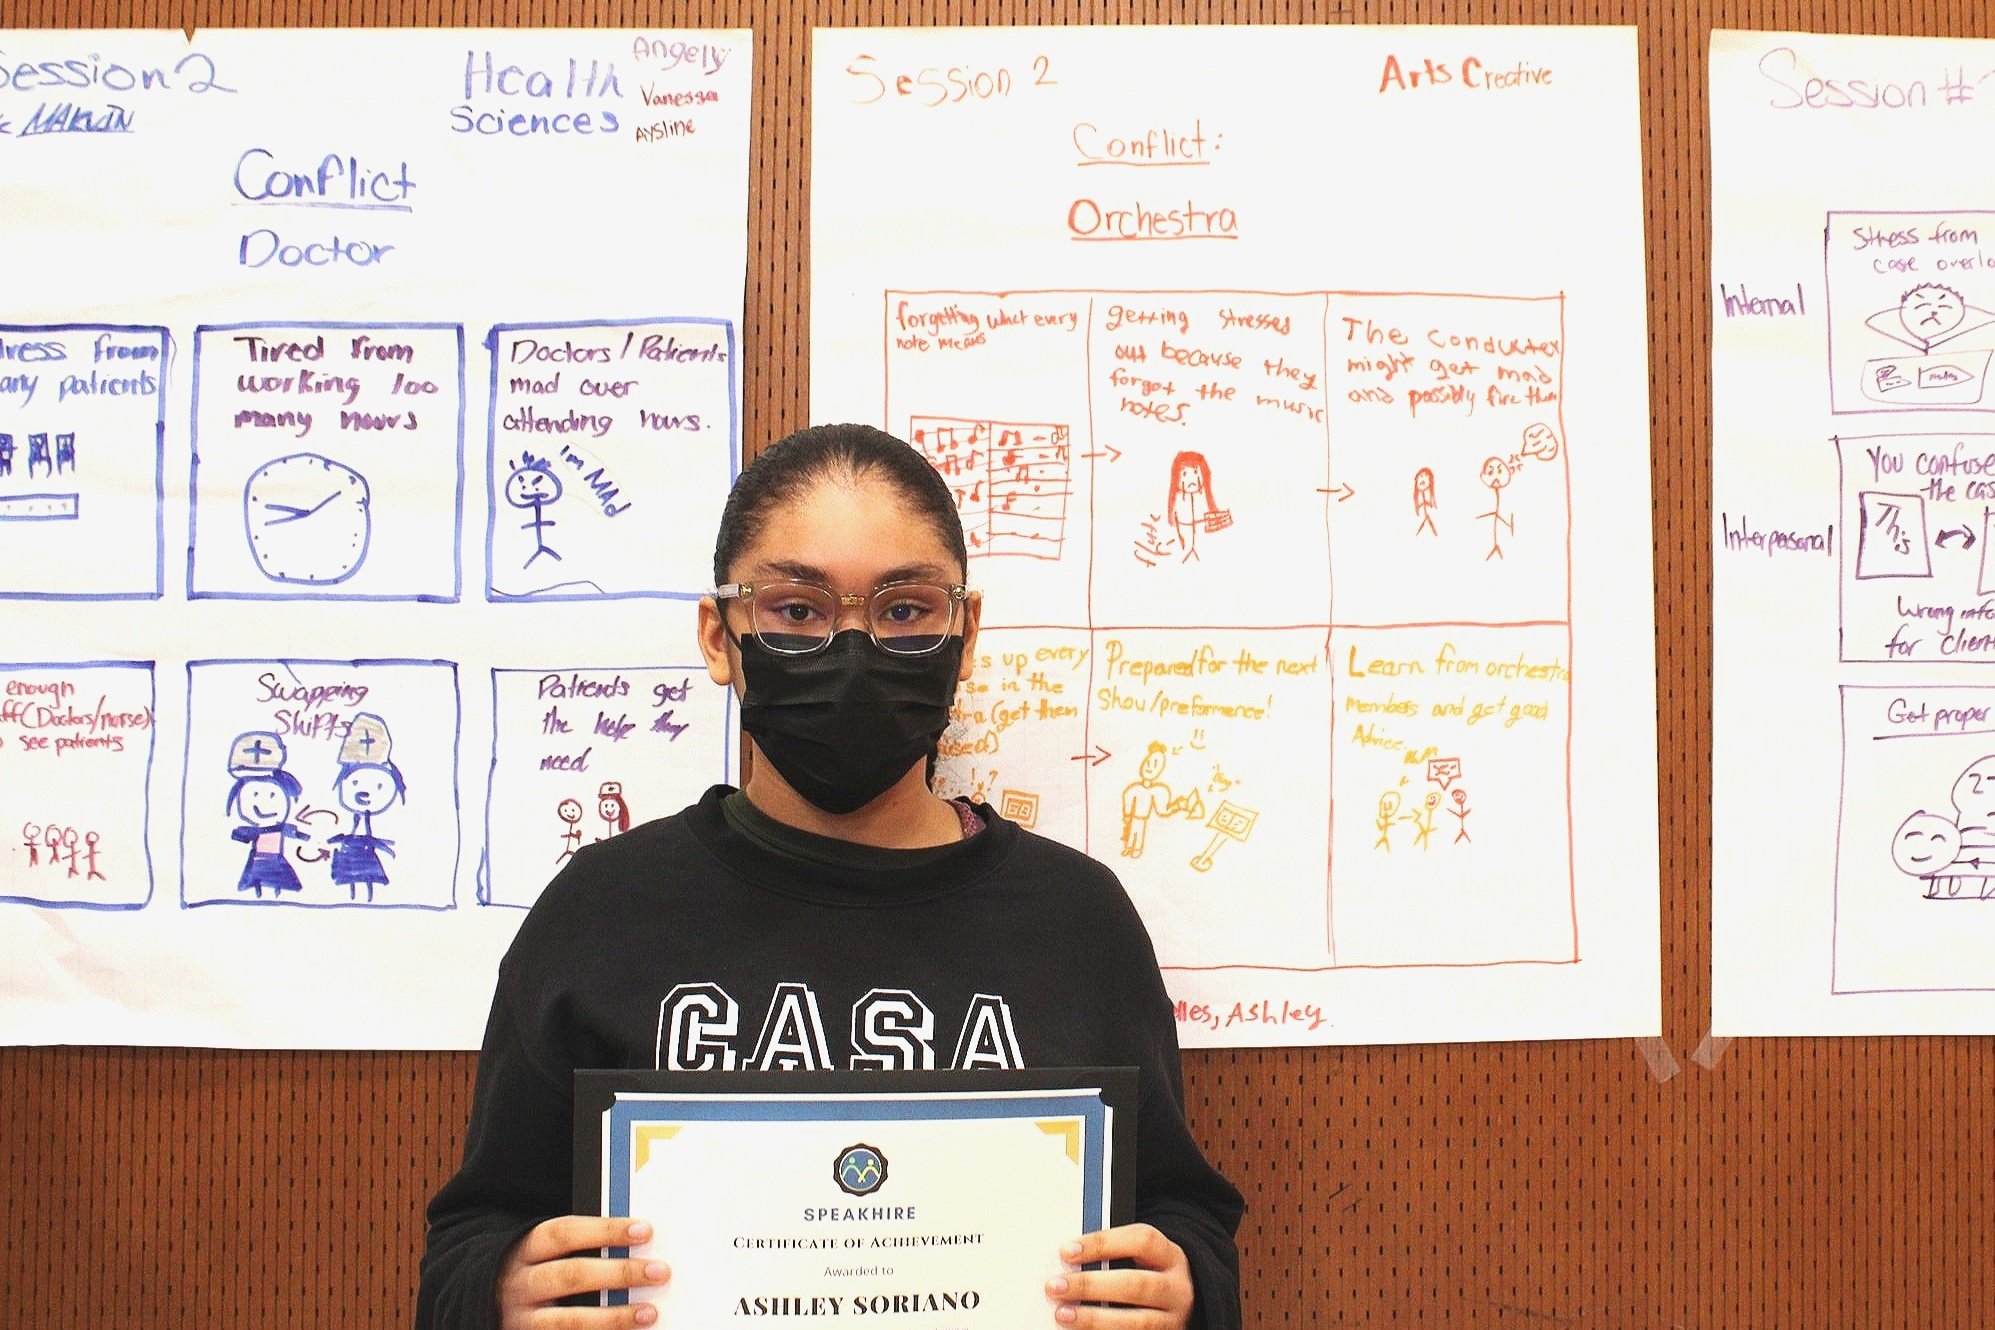 Session 2
MARVIN
Health
Sciences
Angely
Vanessa
Aysline
Conflict
Doctor
from
patients
Tired from
working 100
many hours
Doctors/Patients
mad over
attending hours.
I'm MAd
enough
(Doctors/nurse)
see patients
Swapping
Shifts
Patients get
the help they
need
Session 2
Arts Creative
Conflict:
Orchestra
forgetting what every
note means
getting stresses
out because they
forgot the music
notes.
The conducter
might get mad
and possibly fire them
up every
in the
(get them
Prepared for the next
Show/preformence!
Learn from orchestra
members and get good
Advice.
Ashley
Session #
Internal
Stress from
case
Interpersonal
You confuse
the
This
Wrong
for
Get proper
CASA
SPEAKHIRE
CERTIFICATE OF ACHIEVEMENT
Awarded to
ASHLEY SORIANO